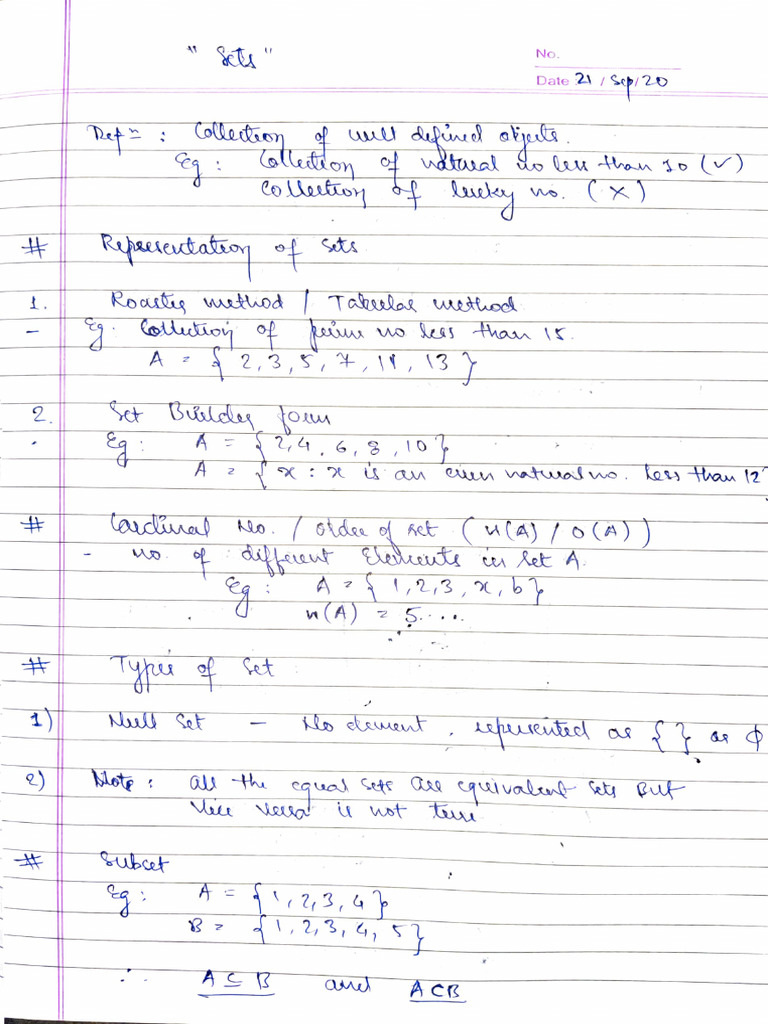 " Sets "
No.
Date 21 / Sep / 20
Defⁿ : Collection of well defined objects.
Eg : Collection of natural no less than 10 (✓)
Collection of lucky no. (✗)
# Representation of sets
1. Roaster method / Tabular method
- Eg. Collection of prime no less than 15.
A = { 2, 3, 5, 7, 11, 13 }
2. Set Builder form
. Eg : A = { 2, 4, 6, 8, 10 }
A = { x : x is an even natural no. less than 12 }
# Cardinal No. / Order of set ( n(A) / O(A) )
- no. of different Elements in Set A.
Eg : A = { 1, 2, 3, x, b }
n(A) = 5....
# Types of Set
1) Null Set - No element, represented as { } or ϕ
2) Note : all the equal sets are equivalent sets But
vice versa is not true
# Subset
Eg : A = { 1, 2, 3, 4 }
B = { 1, 2, 3, 4, 5 }
∴ A ⊆ B and A ⊂ B